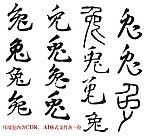 兔 兔 兔 兔
兔 兔 兔 兔
兔 兔 兔 兔
兔 兔
压缩包内含CDR、AI格式文件各一份